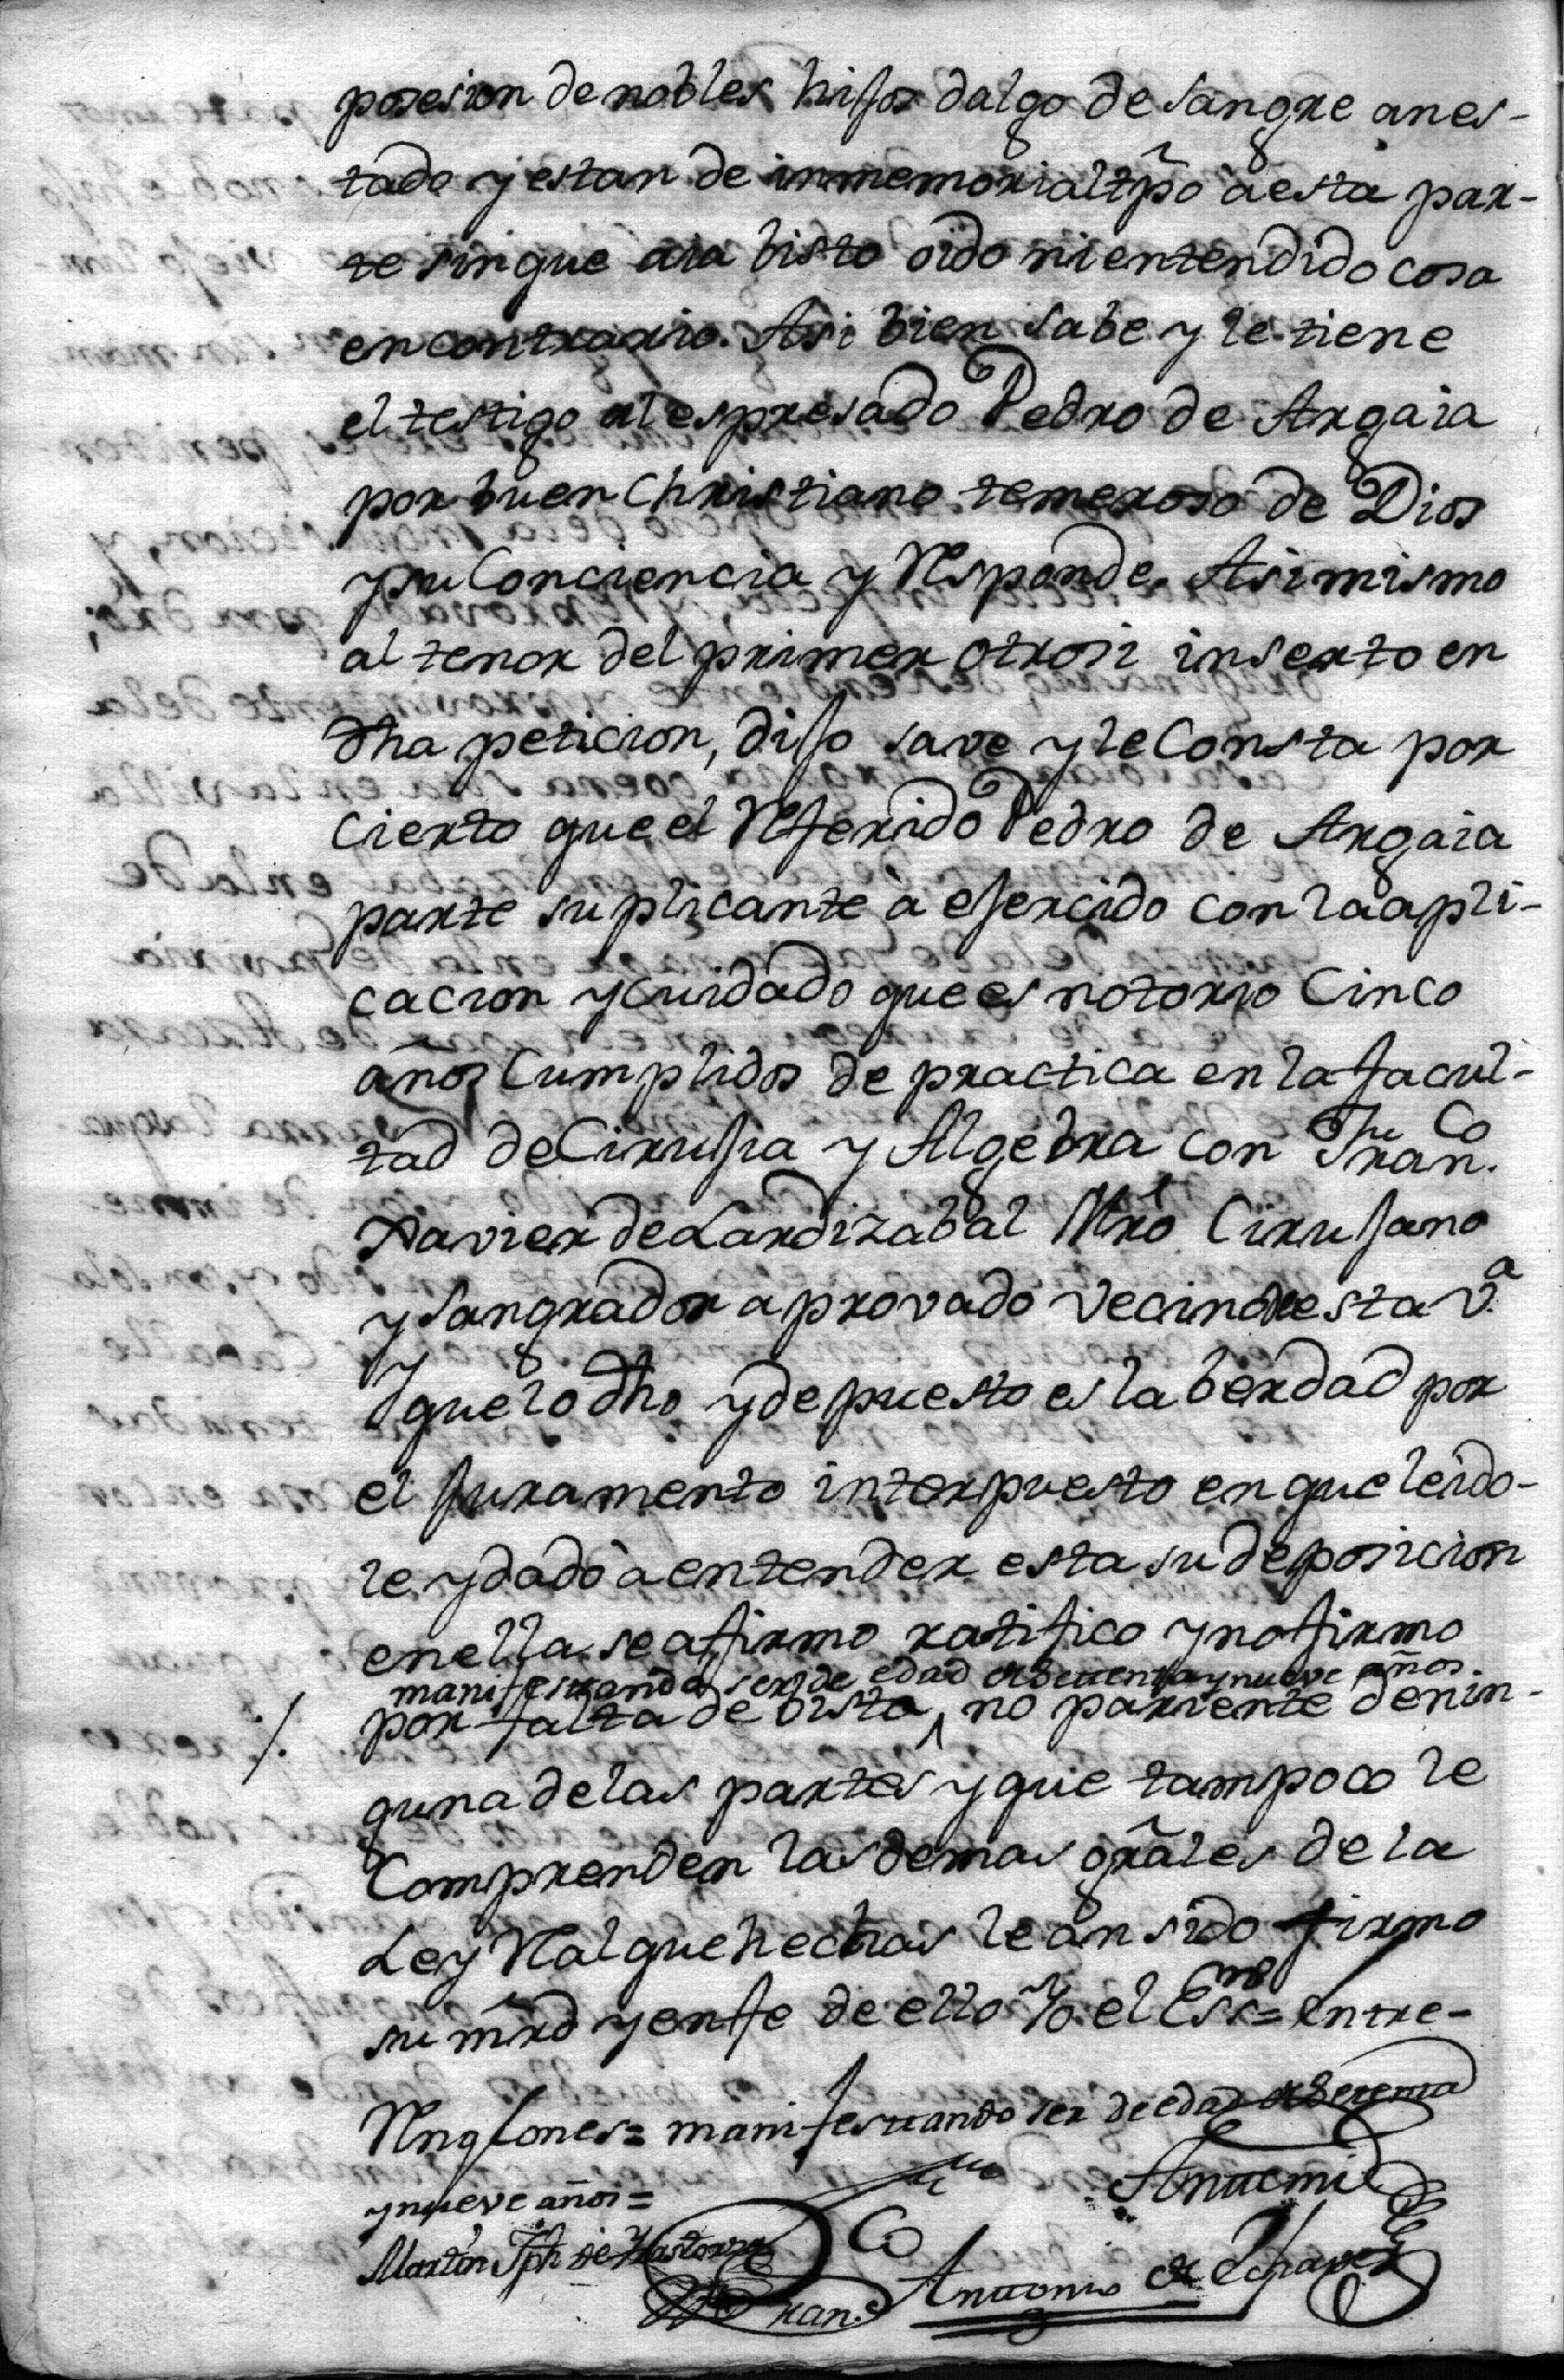 posesion de nobles hijos dalgo de sangre an es-
tado y estan de inmemorial tpo à esta par-
te sin que aia bisto oido ni entendido cosa
en contrario. Asi bien sabe y le tiene
el testigo al espresado Pedro de Argaia
por buen Christiano temeroso de Dios
y su Conciencia y Responde. Asimismo
al tenor del primer otrosi inserto en
dha peticion, dijo save y le Consta por
Cierto que el Referido Pedro de Argaia
parte suplicante à ejercido con la apli-
cacion y Cuidado que es notorio Cinco
años Cumplidos de practica en la facul-
tad de Cirujia y Algebra con Fran.co
Xavier de Lardizabal Mro Cirujano
y Sangrador aprovado vecino de esta v.a
y que lo dho y depuesto es la berdad por
el juramento interpuesto en que leido-
le y dado à entender esta su deposicion
en ella se afirmo ratifico y no firmo
manifestando ser de edad de setenta y nueve años.
./. por falta de vista ^ no pariente de nin-
guna de las partes y que tampoco le
Comprenden las demas grales de la
Ley Real que hechas le an sido firmo
su mrd y en fe de ello Yo el Essno = entre-
Renglones = manifestando ser de edad de setenta
y nueve años =
Antemi
Martin Jph de
Antonio de Echave